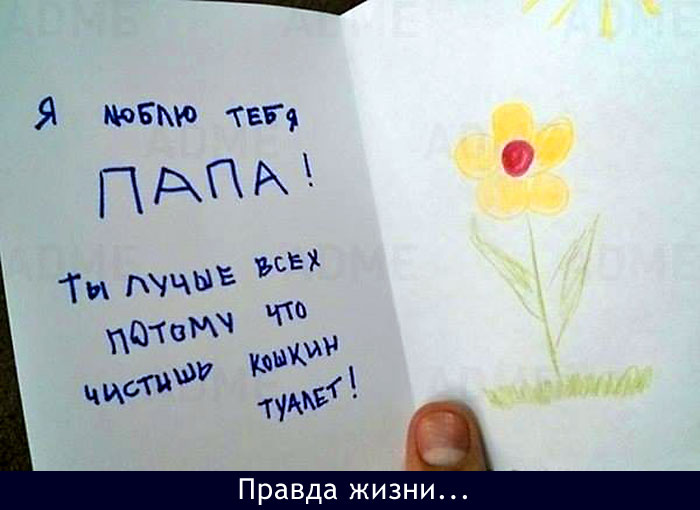 Я люблю тебя
ПАПА!
Ты лучше всех
потому что
чистишь кошкин
туалет!
Правда жизни...